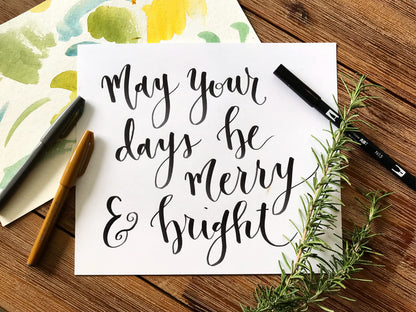 May Your
days be
Merry
& bright